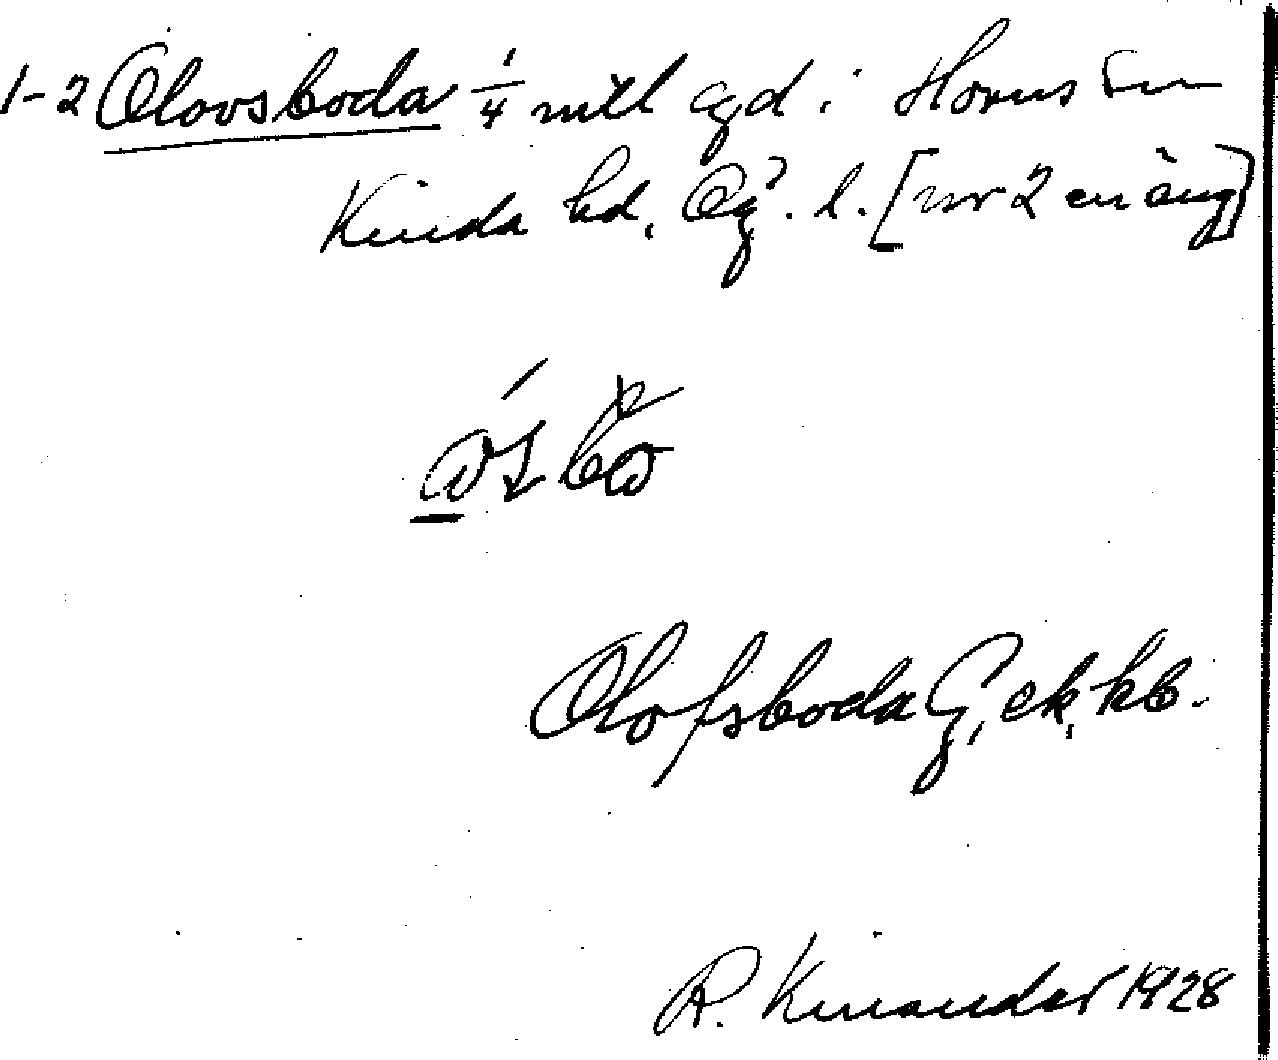 1-2 Olovsboda 1/4 mtl egd i Horns sn
Kinda hd. Ög. l. [nr 2 en äng]
Olofsboda G, ek, kb.
R. Kinander 1928